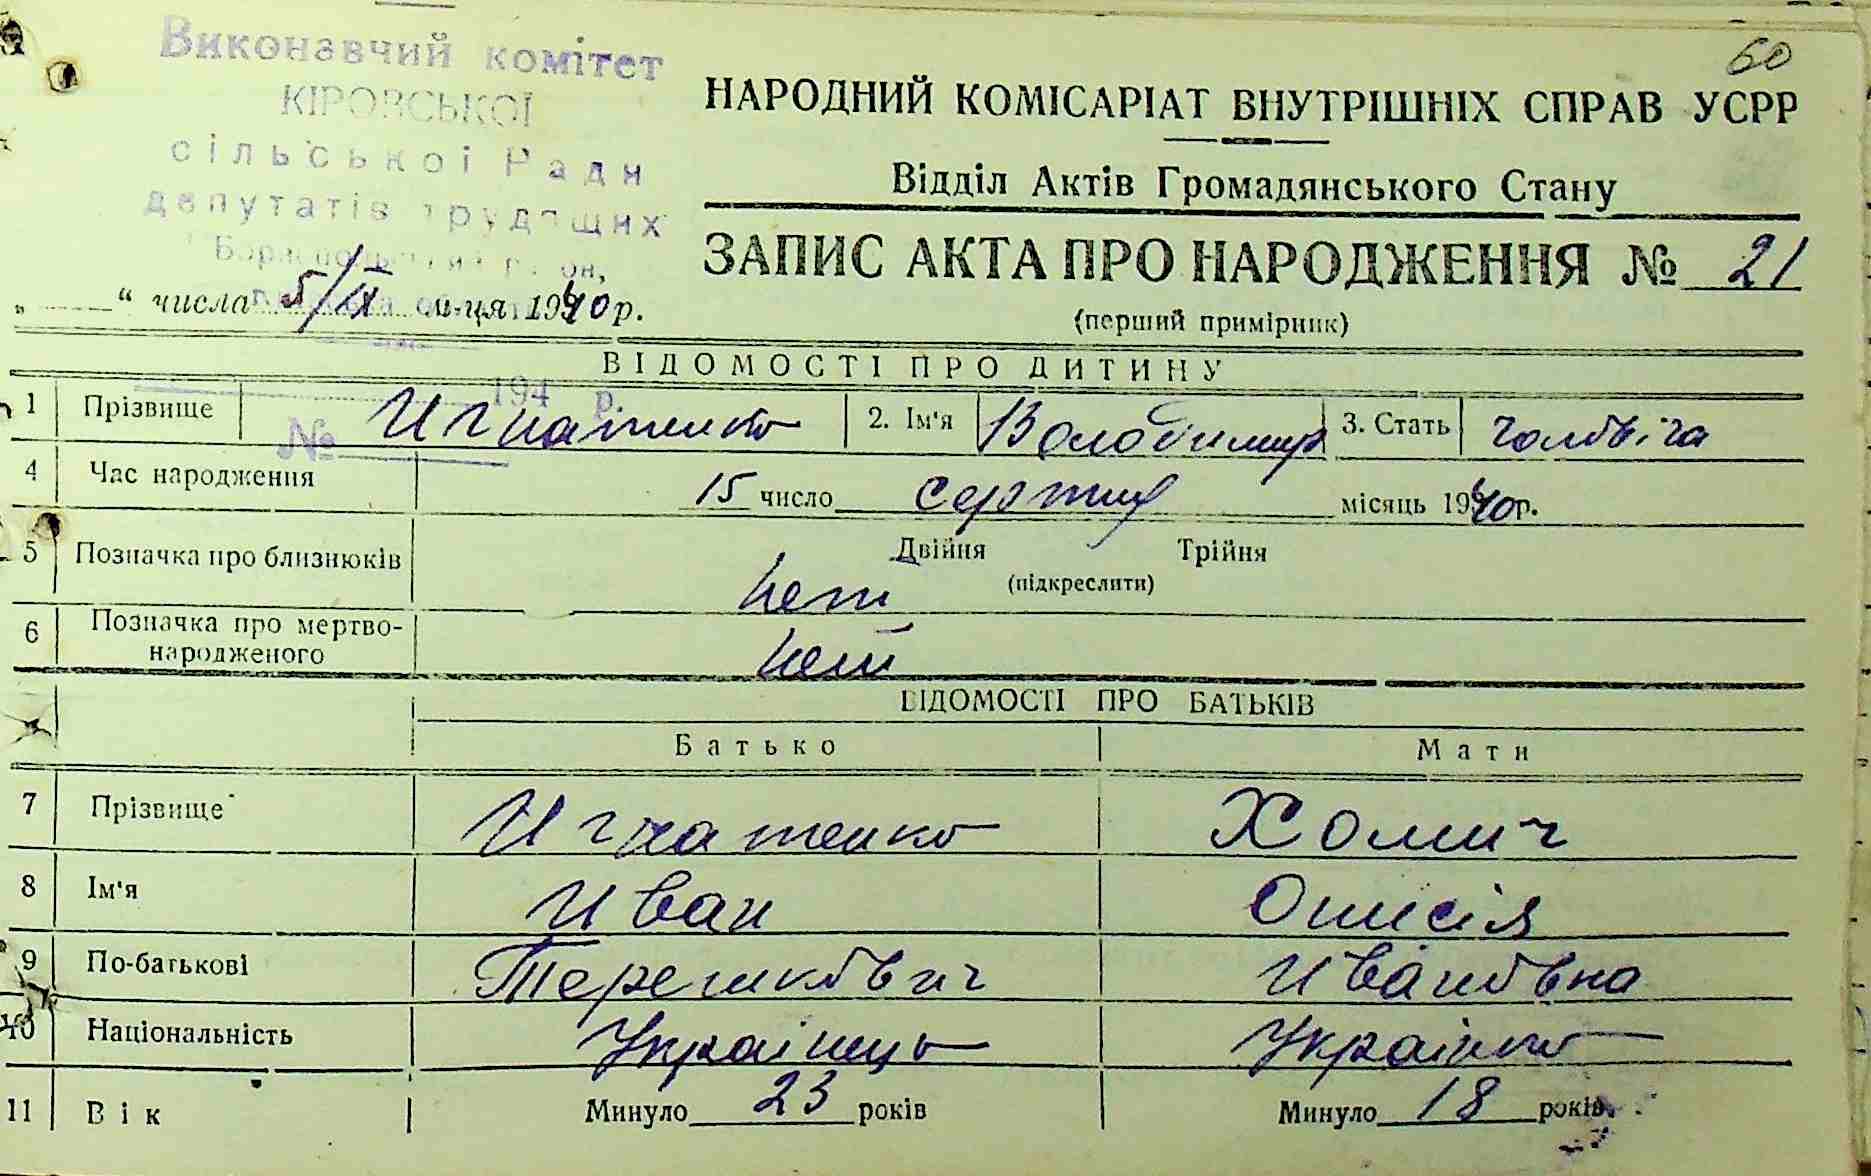 60
Виконавчий комітет
КІРОВСЬКОЇ
сільської Ради
депутатів трудящих
НАРОДНИЙ КОМІСАРІАТ ВНУТРІШНІХ СПРАВ УСРР
Відділ Актів Громадянського Стану
ЗАПИС АКТА ПРО НАРОДЖЕННЯ № 21
(перший примірник)
„ “ числа 5/IX м-ця 1940 р.
194 р.
№
ВІДОМОСТІ ПРО ДИТИНУ
1 Прізвище Игнатенко 2. Ім'я Володимир 3. Стать чоловіча
4 Час народження 15 число серпня місяць 1940 р.
5 Позначка про близнюків Двійня Трійня
(підкреслити)
нет
6 Позначка про мертво-
народженого нет
ВІДОМОСТІ ПРО БАТЬКІВ
Батько Мати
7 Прізвище Игнатенко Хомич
8 Ім'я Иван
9 По-батькові Терешкович Ивановна
10 Національність Українець Українка
11 Вік Минуло 23 років Минуло 18 років